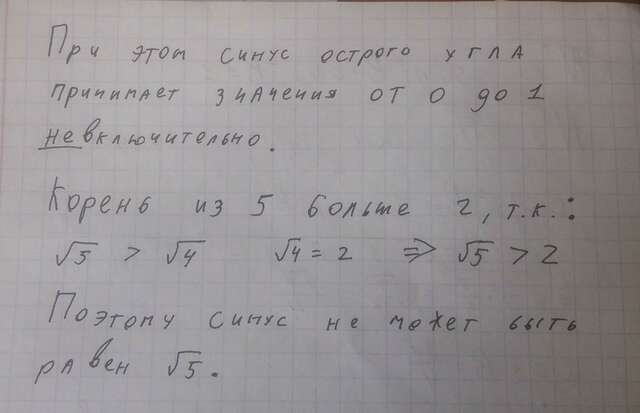 При этом синус острого угла
принимает значения от 0 до 1
невключительно.
Корень из 5 больше 2, т.к.:
√5 > √4 √4 = 2 ⇒ √5 > 2
Поэтому синус не может быть
равен √5.